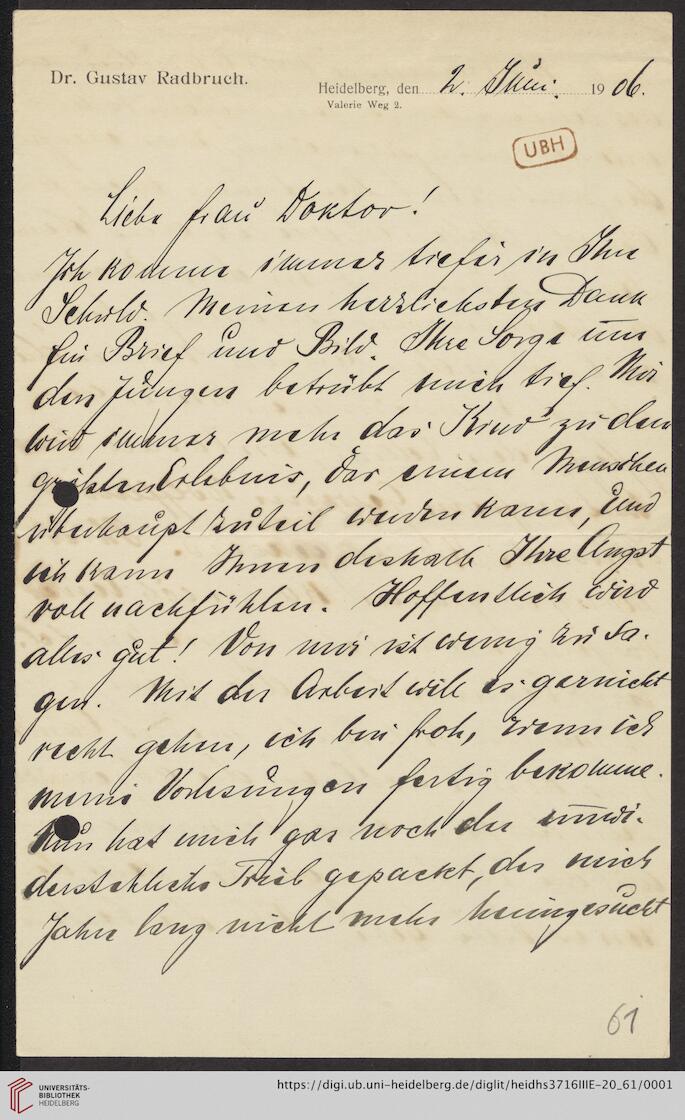 Dr. Gustav Radbruch.
Heidelberg, den 2. Juni. 1906.
Valerie Weg 2.
UBH
Liebe Frau Doktor!
Ich komme immer tiefer in Ihre
Schuld. Meinen herzlichsten Dank
für Brief und Bild. Ihre Sorge um
den Jungen betrübt mich tief. Mir
wird immer mehr das Kind zu dem
größten Erlebnis, das einem Menschen
überhaupt zuteil werden kann, und
ich kann Ihnen deshalb Ihre Angst
voll nachfühlen. Hoffentlich wird
alles gut! Von mir ist wenig zu sa-
gen. Mit der Arbeit will es garnicht
recht gehen, ich bin froh, wenn ich
meine Vorlesungen fertig bekomme.
Nun hat mich gar noch der unwi-
derstehliche Trieb gepackt, der mich
Jahre lang nicht mehr heimgesucht
61
UNIVERSITÄTS-
BIBLIOTHEK
HEIDELBERG
https://digi.ub.uni-heidelberg.de/diglit/heidhs3716IIIE-20_61/0001